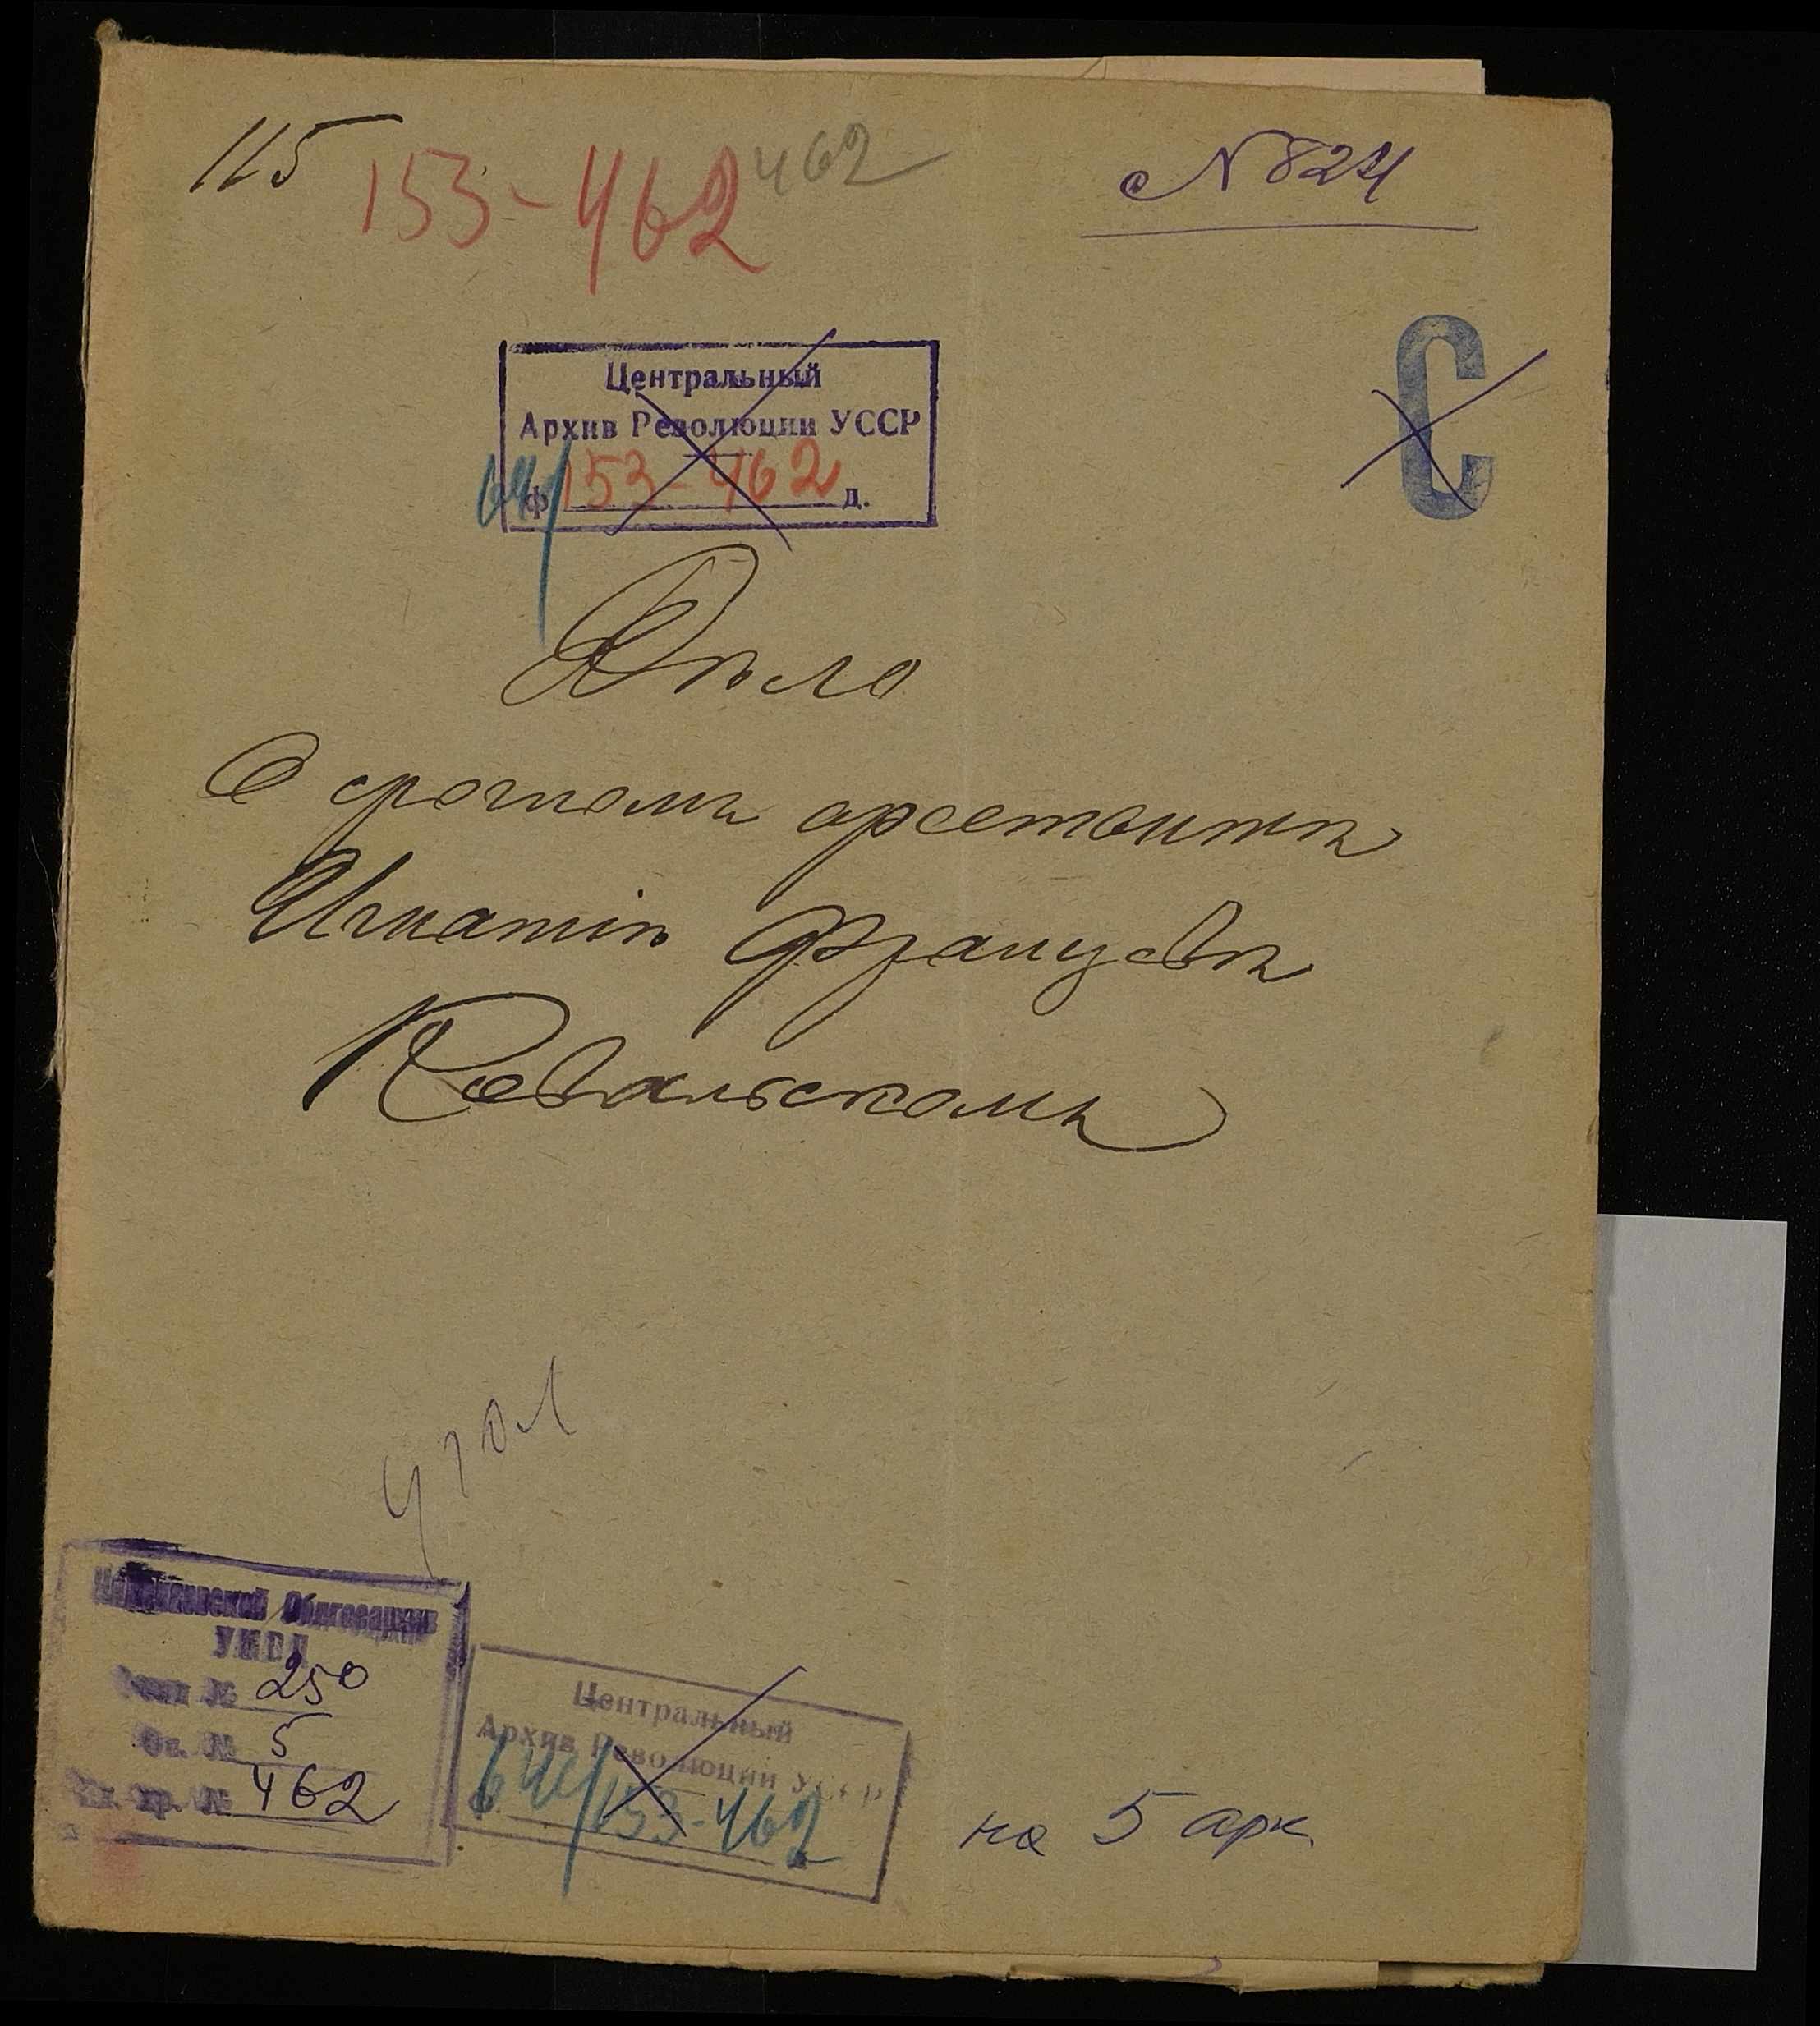 115
153-462
462
№ 824
С
Центральный
Архив Революции УССР
64/ ф 153-462 д.
Дѣло
О срочномъ арестантѣ
Игнатіѣ Францевѣ
Ковальскомъ
Николаевский Облгосархив
УНКВД
Фонд № 250
Оп. № 5
Ед. хр. № 462
Центральный
Архив Революции УССР
64/153-462
на 5 арк.